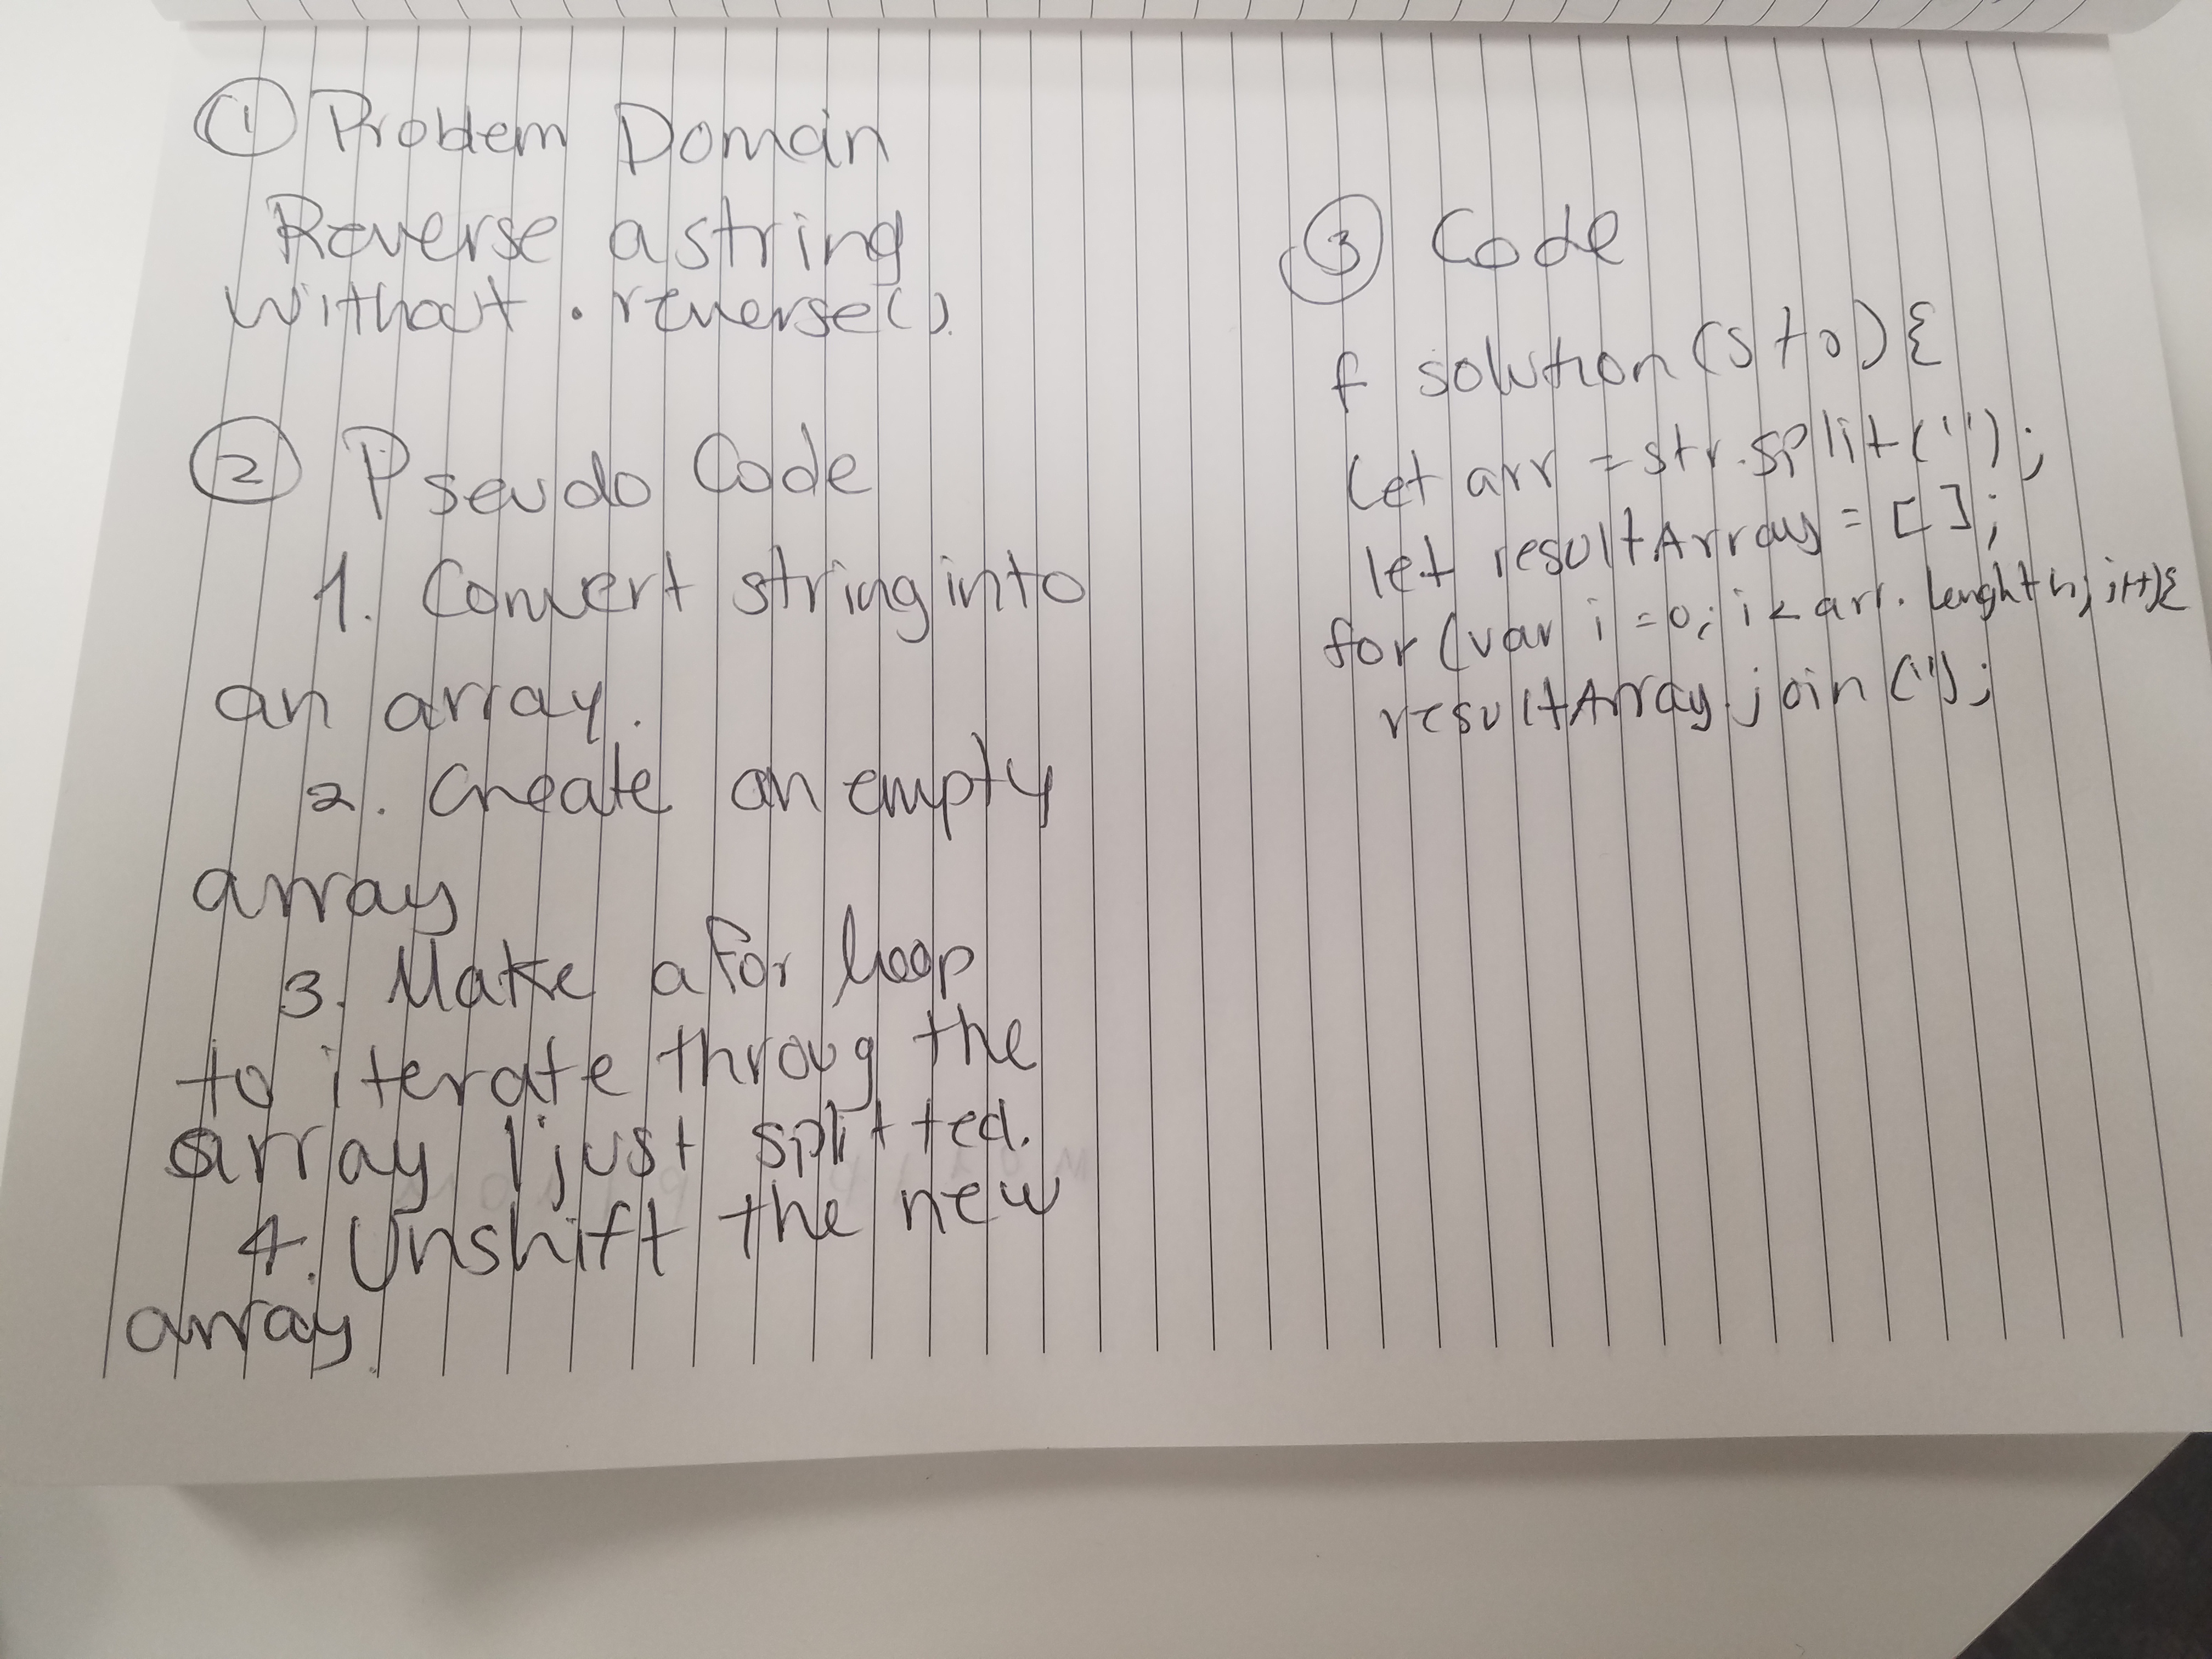 ① Problem Domain
Reverse a string
without .reverse()
② Pseudo Code
1. Convert string into
an array.
2. Create an empty
array
3. Make a for loop
to iterate throug the
array I just splitted.
4. Unshift the new
array.
③ Code
f solution (sto){
let arr = str.split('');
let resultArray = [];
for (var i = 0; i < arr.
resultArray.join('');